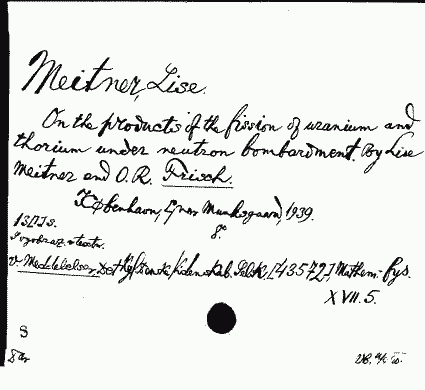 Meitner, Lise.
On the products of the fission of uranium and
thorium under neutron bombardment. By Lise
Meitner and O.R. Frisch.
København, Ejnar Munksgaard, 1939.
8°.
v Meddelelser, Selsk, [43572], Mathem.-fys.
XVII. 5.
S